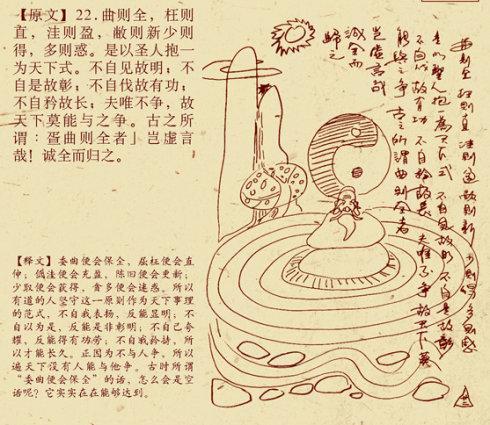 【原文】22.曲则全，枉则
直，洼则盈，敝则新少则
得，多则惑。是以圣人抱一
为天下式。不自见故明；不
自是故彰；不自伐故有功；
不自矜故长；夫唯不争，故
天下莫能与之争。古之所
谓：疍曲则全者」岂虚言
哉！诚全而归之。
【释文】委曲便会保全，屈枉便会直
伸；低洼便会充盈，陈旧便会更新；
少取便会获得，贪多便会迷惑。所以
有道的人坚守这一原则作为天下事理
的范式，不自我表扬，反能显明；不
自以为是，反能是非彰明；不自己夸
耀，反能得有功劳；不自我矜持，所
以才能长久。正因为不与人争，所以
遍天下没有人能与他争。古时所谓
“委曲便会保全”的话，怎么会是空
话呢？它实实在在能够达到。
曲则全 枉则直 洼则盈 敝则新 少则得 多则惑
是以圣人抱一为天下式 不自见故明 不自是故彰
不自伐故有功 不自矜故长 夫唯不争 故天下莫
能与之争 古之所谓曲则全者
岂虚言哉
诚全而
归之